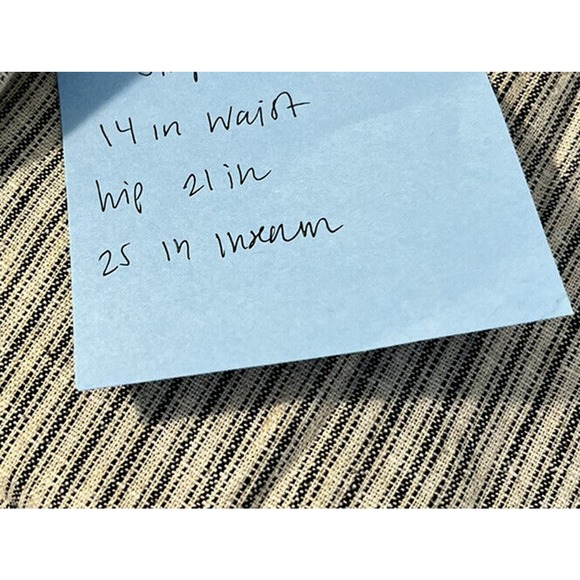 14 in waist
hip 21 in
25 in inseam